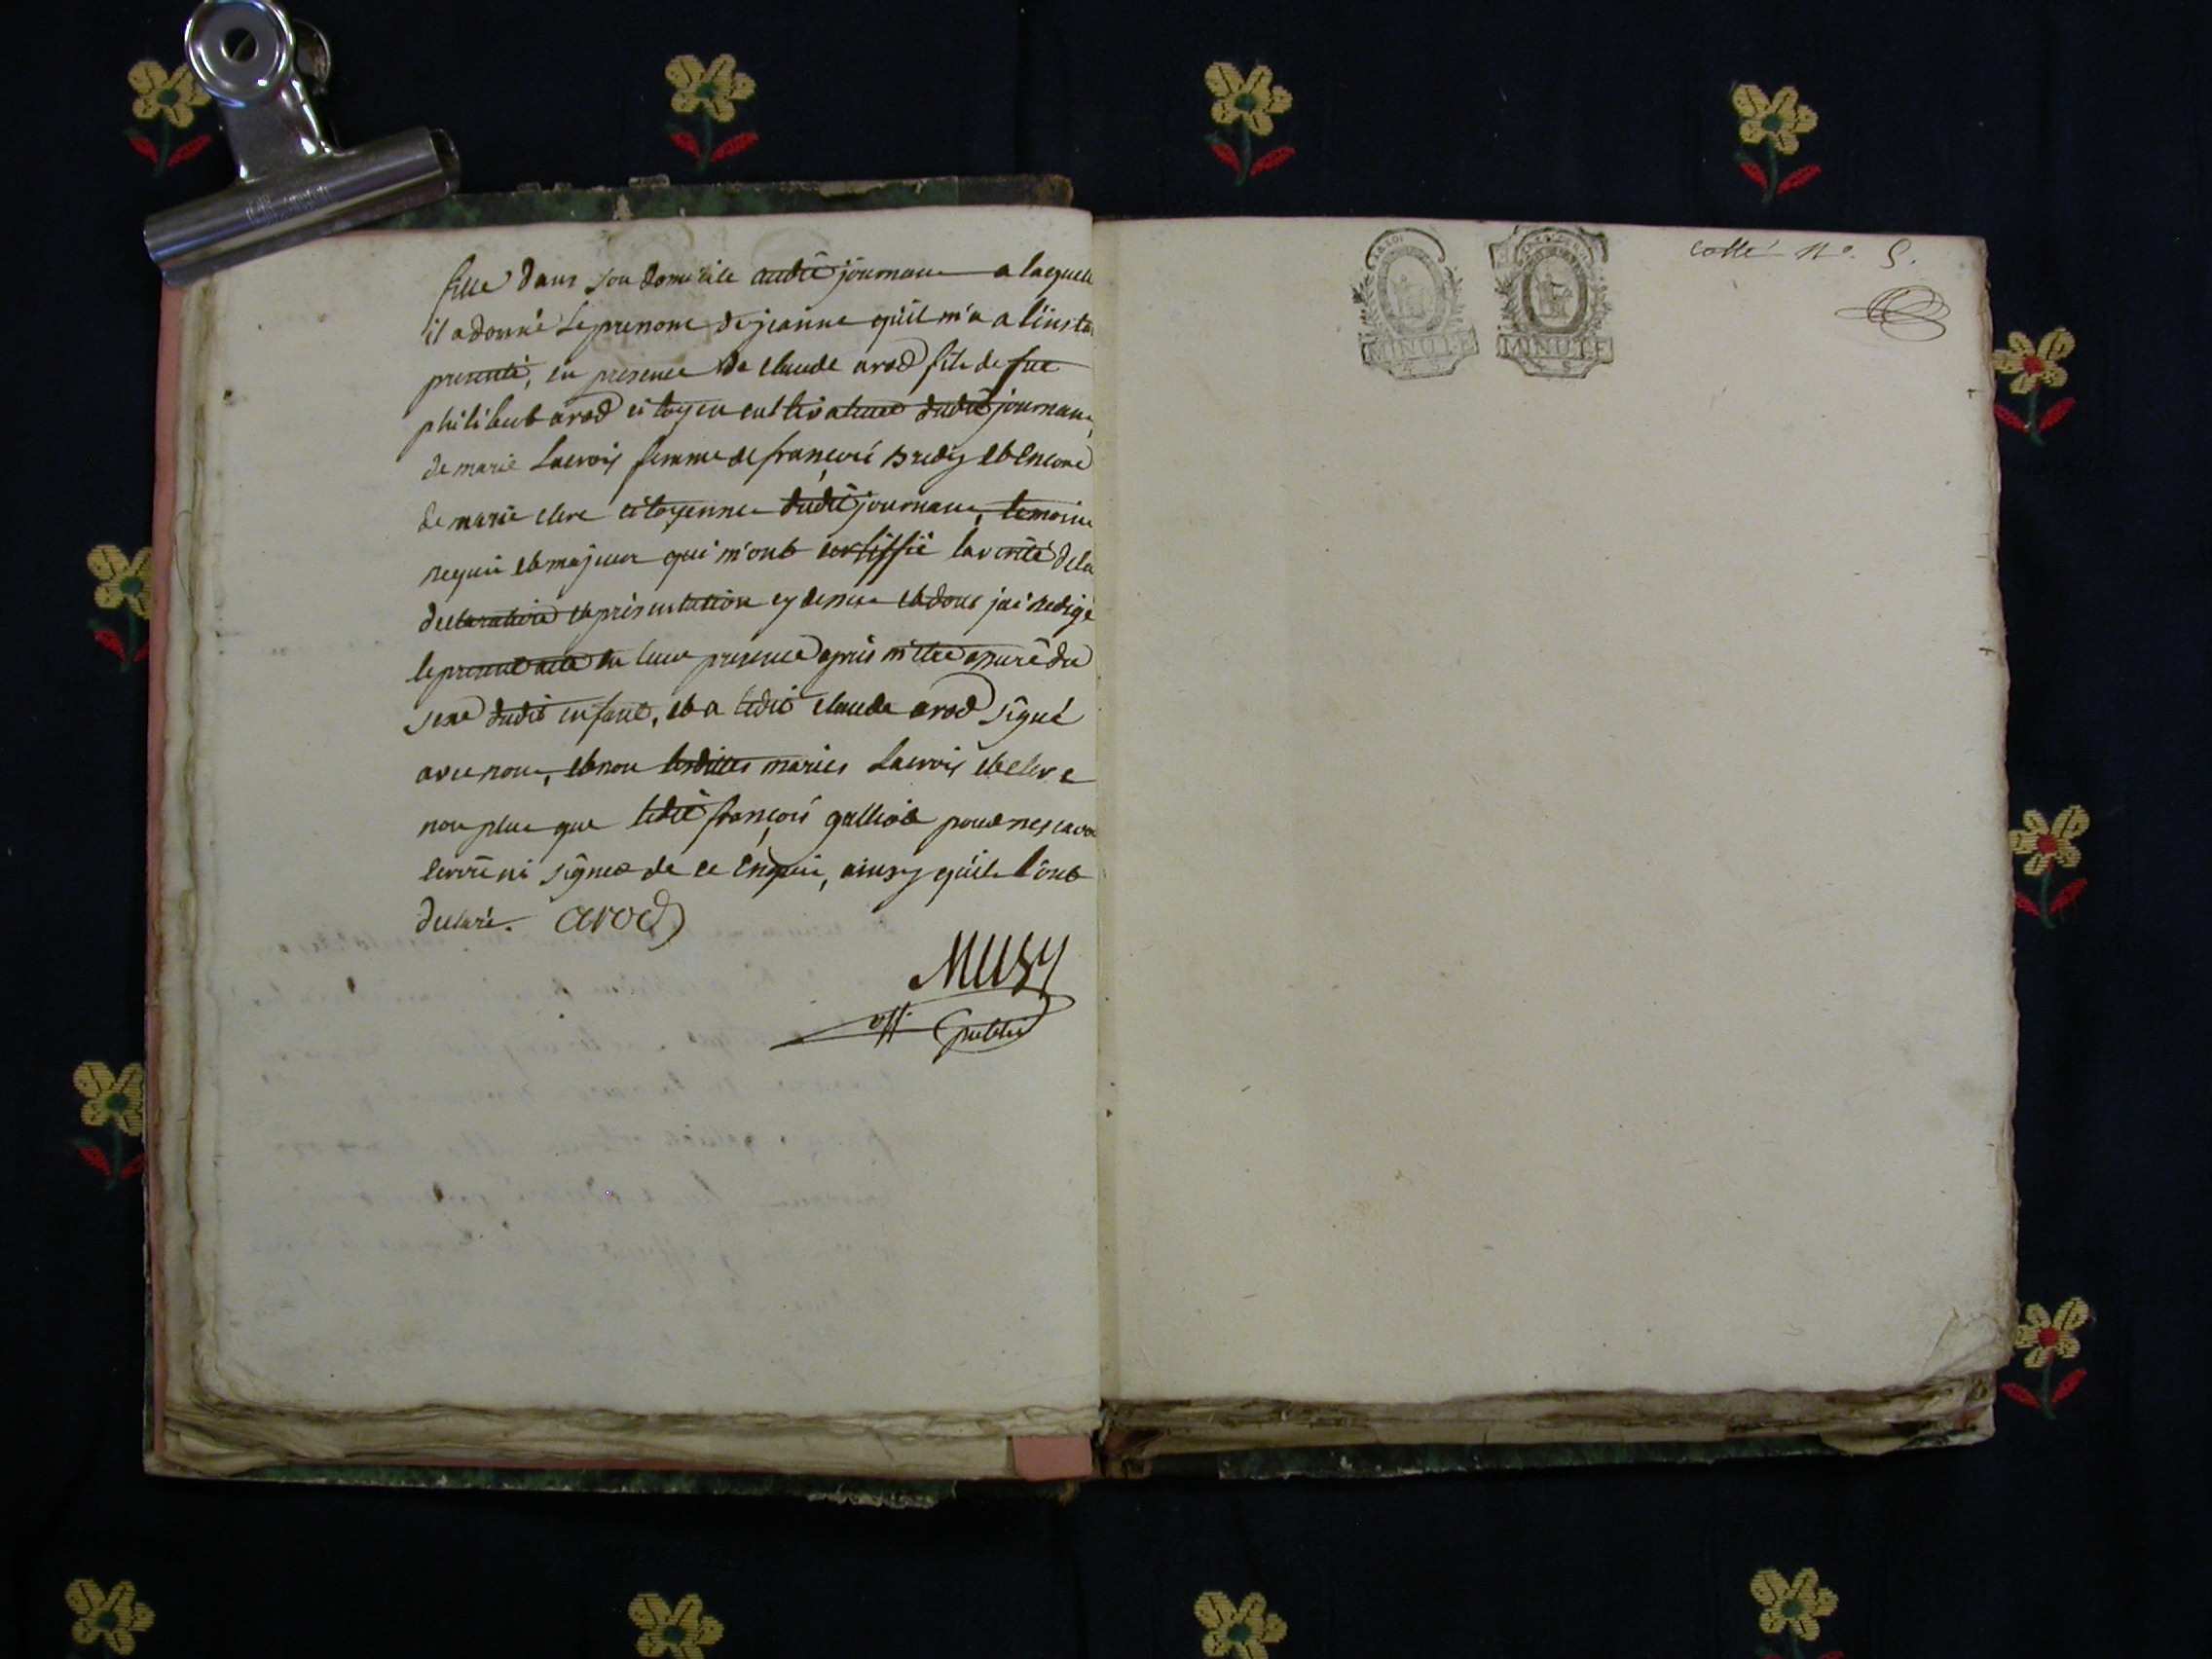 fille dans son domicile audit journans a laquelle
il a donné le prenom de jeanne qu'il m'a a l'insta
presenté, en presence de claude arod fils de feu
philibert arod citoyen cultivateur dudit journans,
de marie Lacroix femme de françois bredy et encore
de marie clere citoyennes dudit journans, temoins
requis et majeurs qui m'ont certiffié la verité de la
declaration et présentation cy dessus et dont jai redigé
le present acte en leur presence apres m'etre assuré du
sexe dudit enfant, et a ledit claude arod signé
avec nous, et non lesdittes maries Lacroix et clere
non plus que ledit françois pour ne scavoir
lerire ni signer de ce enquis, ainsy qu'ils l'ont
declaré. arod
Musy
off. public
cotté n°. 5.
LA LOI
MINUTE
MINUTE